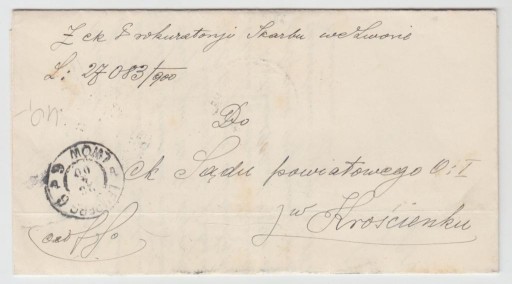 Z ck Prokuratoryi Skarbu we Lwowie
L: 27083/900
Do
ck Sądu powiatowego O: I
w Krościenku
LWÓW
LEMBERG